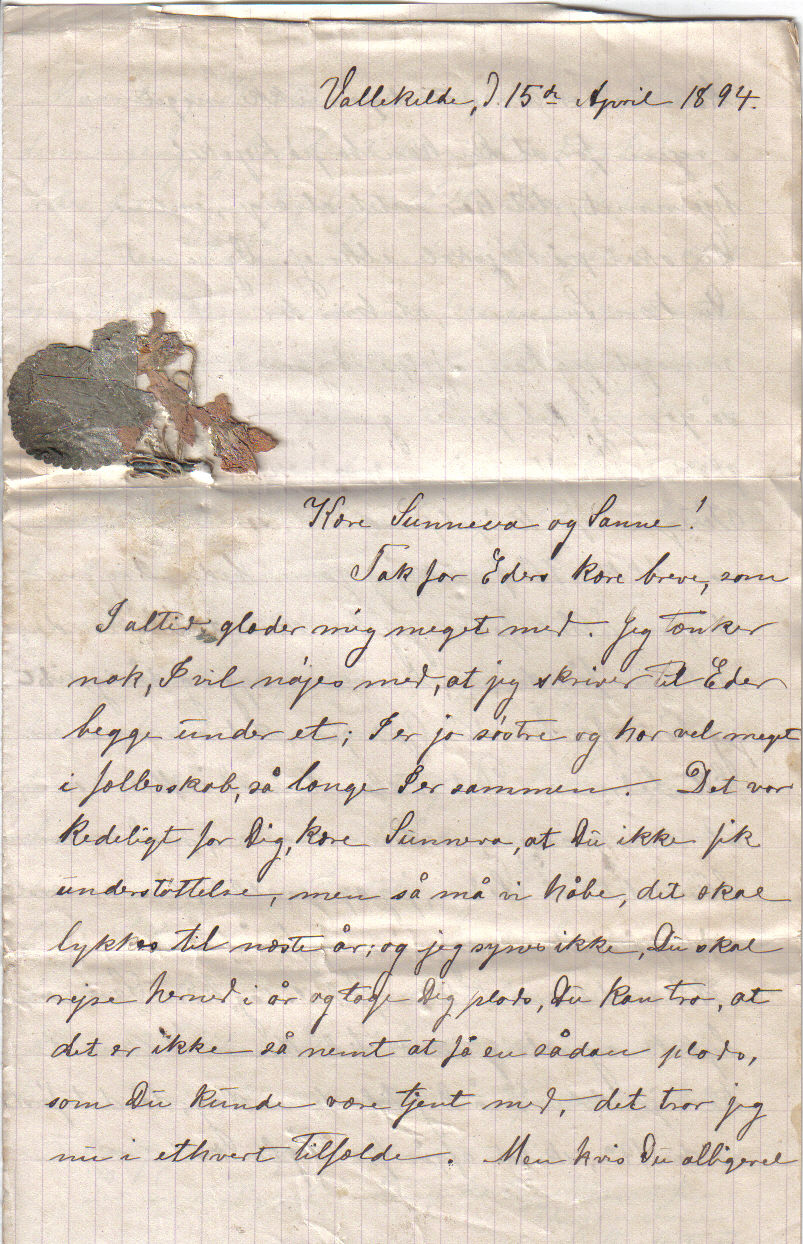 Vallekilde, d. 15de April 1894.
Kære Sunneva og Sanne!
Tak for Eders kære breve, som
I altid glæder mig meget med. Jeg tænker
nok, I vil nöjes med, at jeg skriver til Eder
begge under et; I er jo söstre og har vel meget
i fællesskab, så længe I er sammen. Det var
kedeligt for Dig, kære Sunneva, at Du ikke fik
understöttelse, men så må vi håbe, det skal
lykkes til næste år; og jeg synes ikke, Du skal
rejse herned i år og tage Dig plads, Du kan tro, at
det er ikke så nemt at få en sådan plads,
som Du kunde være tjent med, det tror jeg
nu i ethvert tilfælde. Men hvis Du alligevel